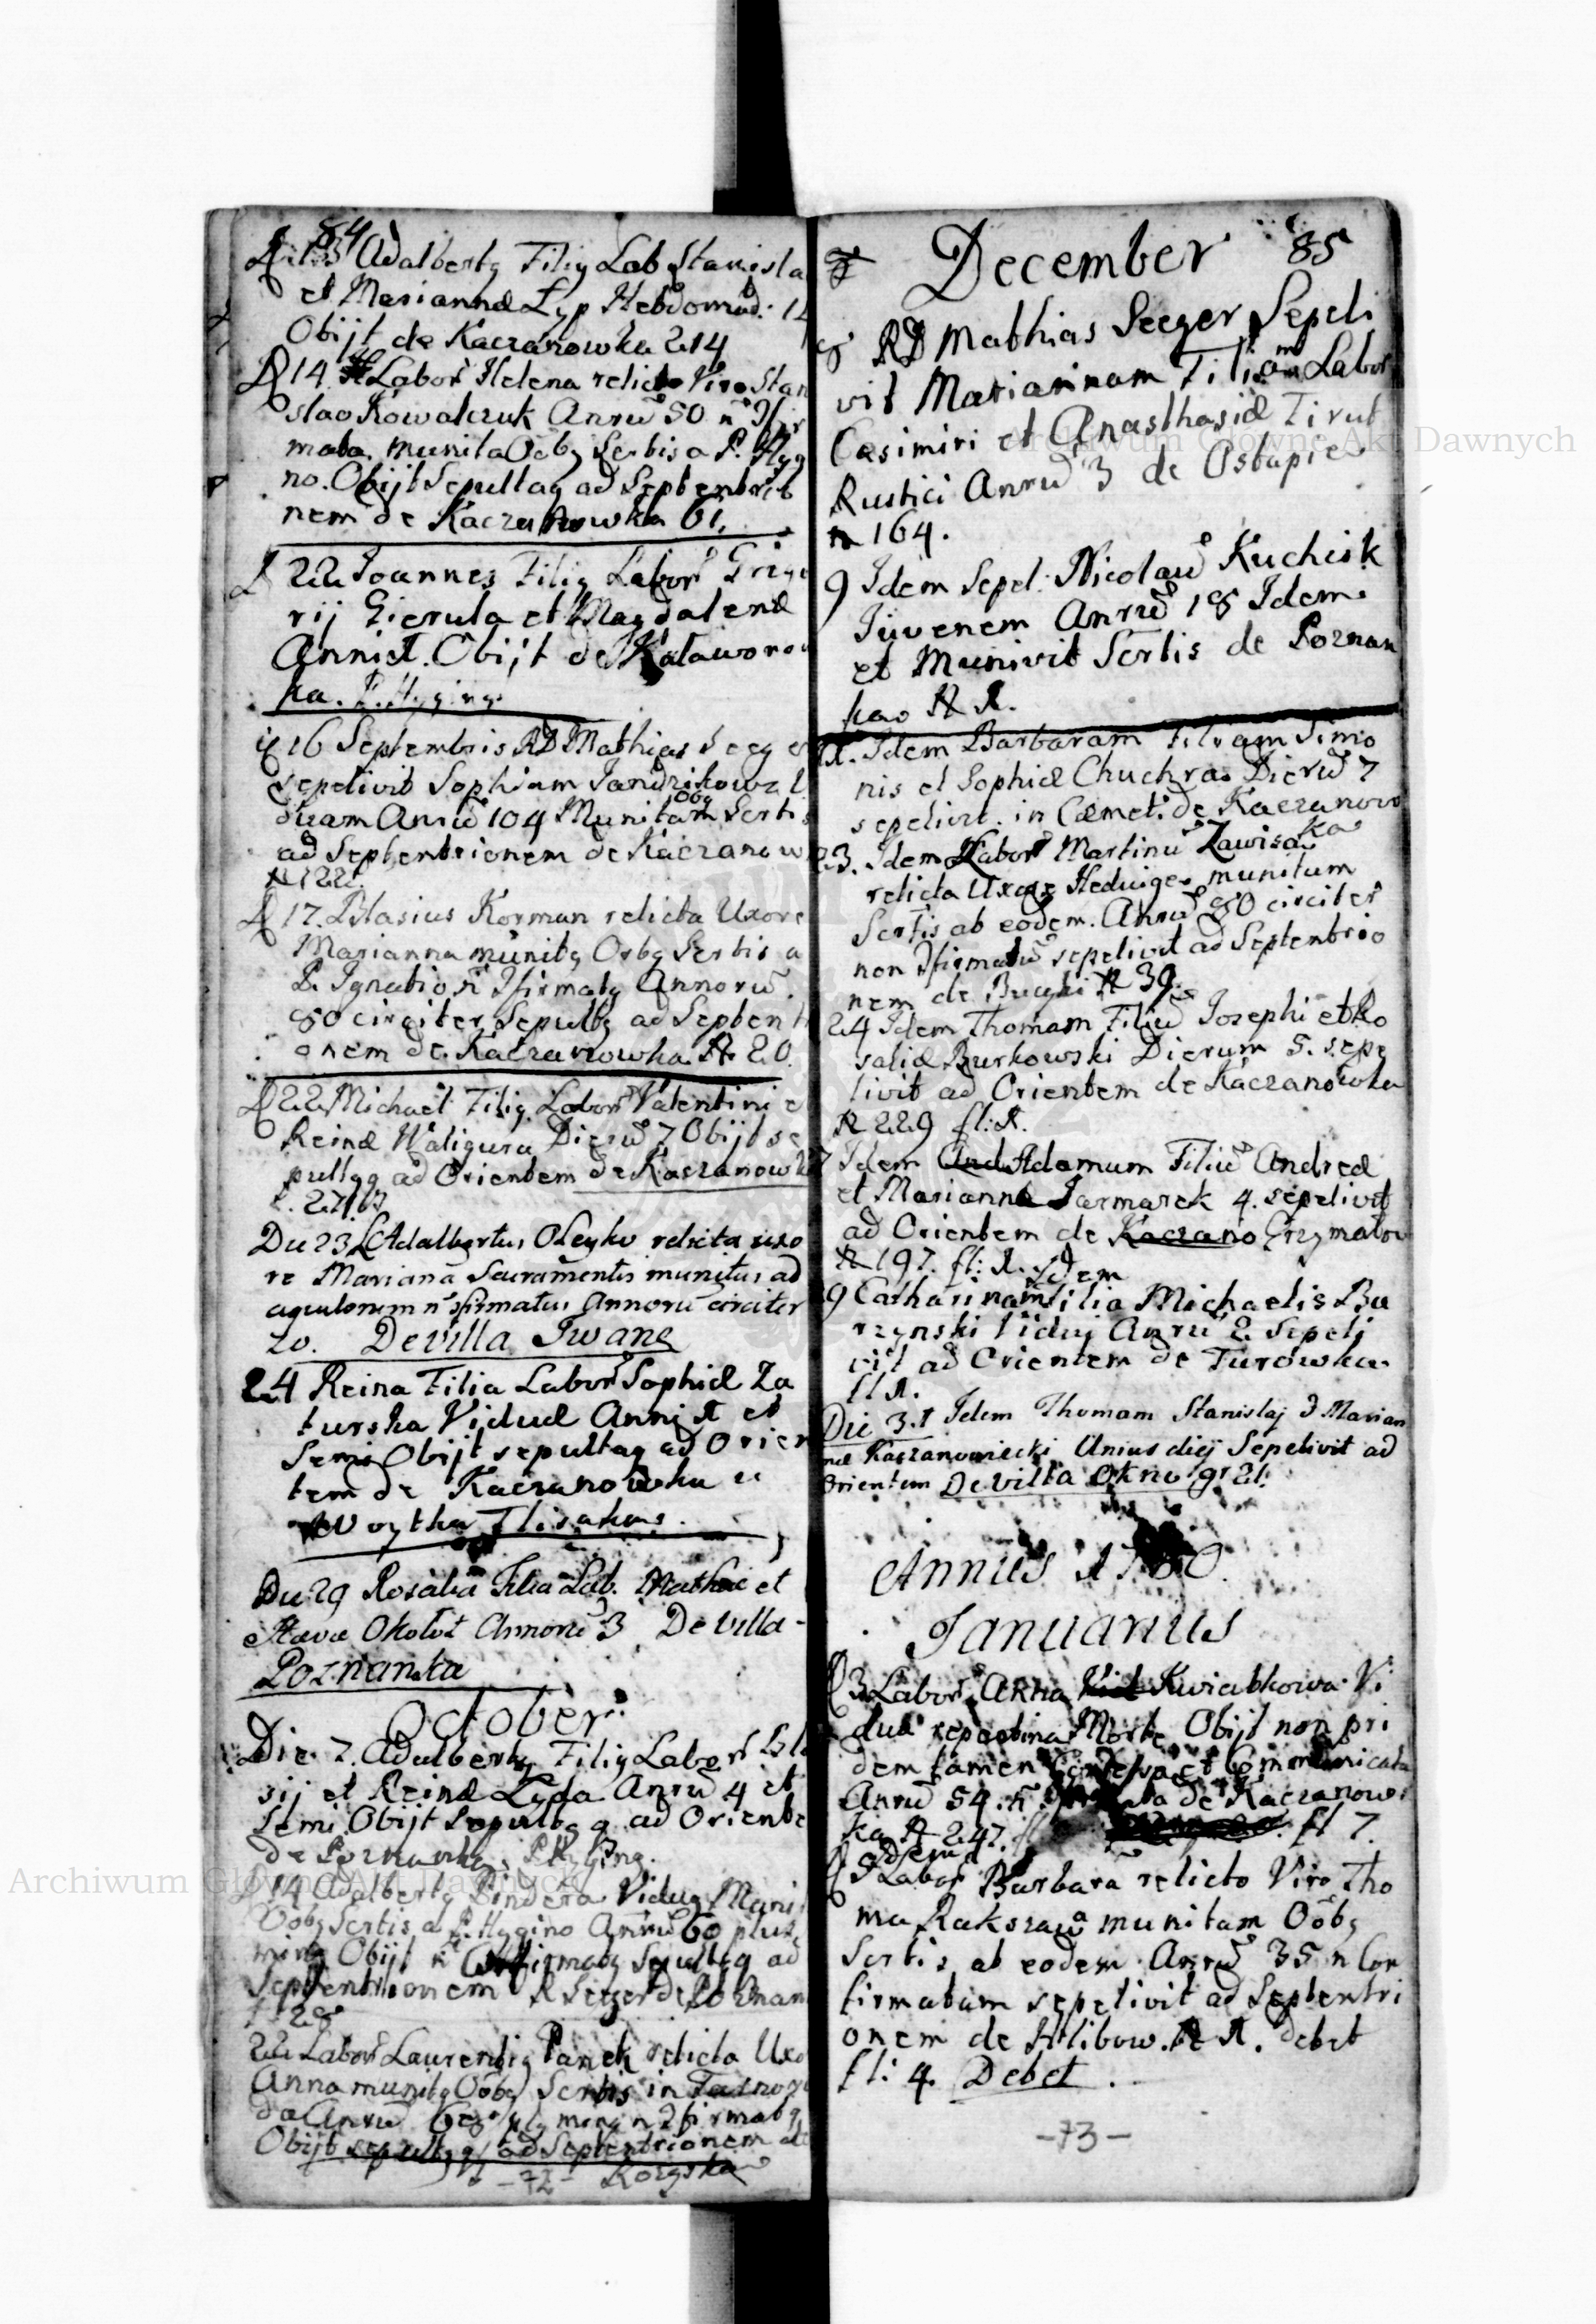 84
13 Adalbertg Filig Lab Stanisla
et Mariannæ Łyp Hebdomad: 12
Obijt de Kaczanowka 214
14 Labor Helena relicto Viro Stan
slao Kowalczuk Annrũ 50 n̄
mata munita Oobg Sertis a P. Hyg
no. Obijt Sepultag ad Septentrio
nem de Kaczanowka 61.
22 Joannes Filig Labor Grigo
rij Gierula et Magdalenæ
Anni 1. Obijt de Kaławorow
ka. P. Hyging
16 Septembris RD Mathias Seeger
sepelivit Sophiam Jandzikowa
duam Annrũ 104 Munitam Oobg Serti
ad Septentrionem de Kaczanow
N 122.
17. Blasius Korman relicta Uxore
Marianna munitg Oobg Sertis a
P. Ignatio n̄ Ifirmatg Annorũ
80 circiter Sepultg ad Septentri
onem de Kaczanowka N 20.
22 Michael Filig Labor Valentini e
Reinæ Waligura Dierũ 7 Obijt se
pultgg ad Orientem de Kaczanowk
Die 23 L Adalbertus Oleyko relicta uxo
re Mariana Sacramentis munitus ad
aquilonem n̄ Ifirmatus Annorũ circiter
70. De villa Iwane
24 Reina Filia Labor Sophiæ Za
turska Viduæ Anni 1 et
Semi Obijt sepultag ad Orien
tem de Kaczanowka u
Woytka Flisaka.
Die 29 Rosalia Filia Lab. Mathæi et
Okołot Annorũ 3 De villa
Poznanka
October
Die 7. Adalbertg Filig Labor Bla
sij et Reinæ Łyda Annrũ 4 et
Semi Obijt Sepultgg ad Oriente
de Poznanka. P. Hyging.
14 Adalbertg Bindera Vidug Muni
Oobg Sertis a P. Hygino Annrũ 60 plus
ming Obijt n̄ Confirmatg Sepultgg ad
Septentrionem R Seeger de Poznan
28
22 Labor Laurentig Panek relicta Uxo
Anna munitg Oobg Sertis in Tarnoru
da Annrũ ming n Ifirmatg
Obijt sepultgg ad Septentrionem de
-72- Kozyska
December 85
8 RD Mathias Seeger Sepeli
vit Mariannam Filiam Labor
Casimiri et Anasthasiæ Tirut
Rustici Annrũ 3 de Ostapie
N 164.
9 Idem Sepel: Nicolaũ Kuchcik
Juvenem Annrũ 18 Idem
et Munivit Sertis de Poznan
ka N 1.
Idem Barbaram Filiam Simo
nis et Sophiæ Chuchra Dierũ 7
sepelivit in Cæmet: de Kaczanow
ka
23. Idem Labor Martinũ Zawisa
relicta Uxore Hedvige munitum
Sertis ab eodem. Annrũ 80 circiter
non Ifirmatũ sepelivit ad Septentrio
nem de Bucyki N 39.
24 Idem Thomam Filiũ Josephi et Ro
saliæ Burkowski Dierum 5. sepe
livit ad Orientem de Kaczanowka
N 229 fl: 1.
Idem And Adamum Filiũ Andreæ
et Mariannæ Jarmarek 4. sepelivit
ad Orientem de Kaczano Grzymałow
N 197. fl: 1.
Idem
29 Catharinam filia Michaelis Bu
rzynski Vidui Annrũ 2. Sepeli
vit ad Orientem de Turowka
fl 1.
Die 31 Idem Thomam Stanislaj & Marian
næ Kaczanowiecki Unius diej Sepelivit ad
Orientem De villa Okno gr 21
Annus 1780.
Januarius
3 Labor Anna Vid Kwiatkowa Vi
dua repentina Morte Obijt non pri
dem tamen Confessa et Communicata
Annrũ 54. n̄ de Kaczanow
ka N 247. fl 7.
Idem
Labor Barbara relicto Viro Tho
ma Rakszawa munitam Oobg
Sertis ab eodem Annrũ 35 n Con
firmatam sepelivit ad Septentri
onem de Hlibow. N 1. debet
fl: 4. Debet.
-73-
Archiwum Główne Akt Dawnych
Archiwum Główne Akt Dawnych